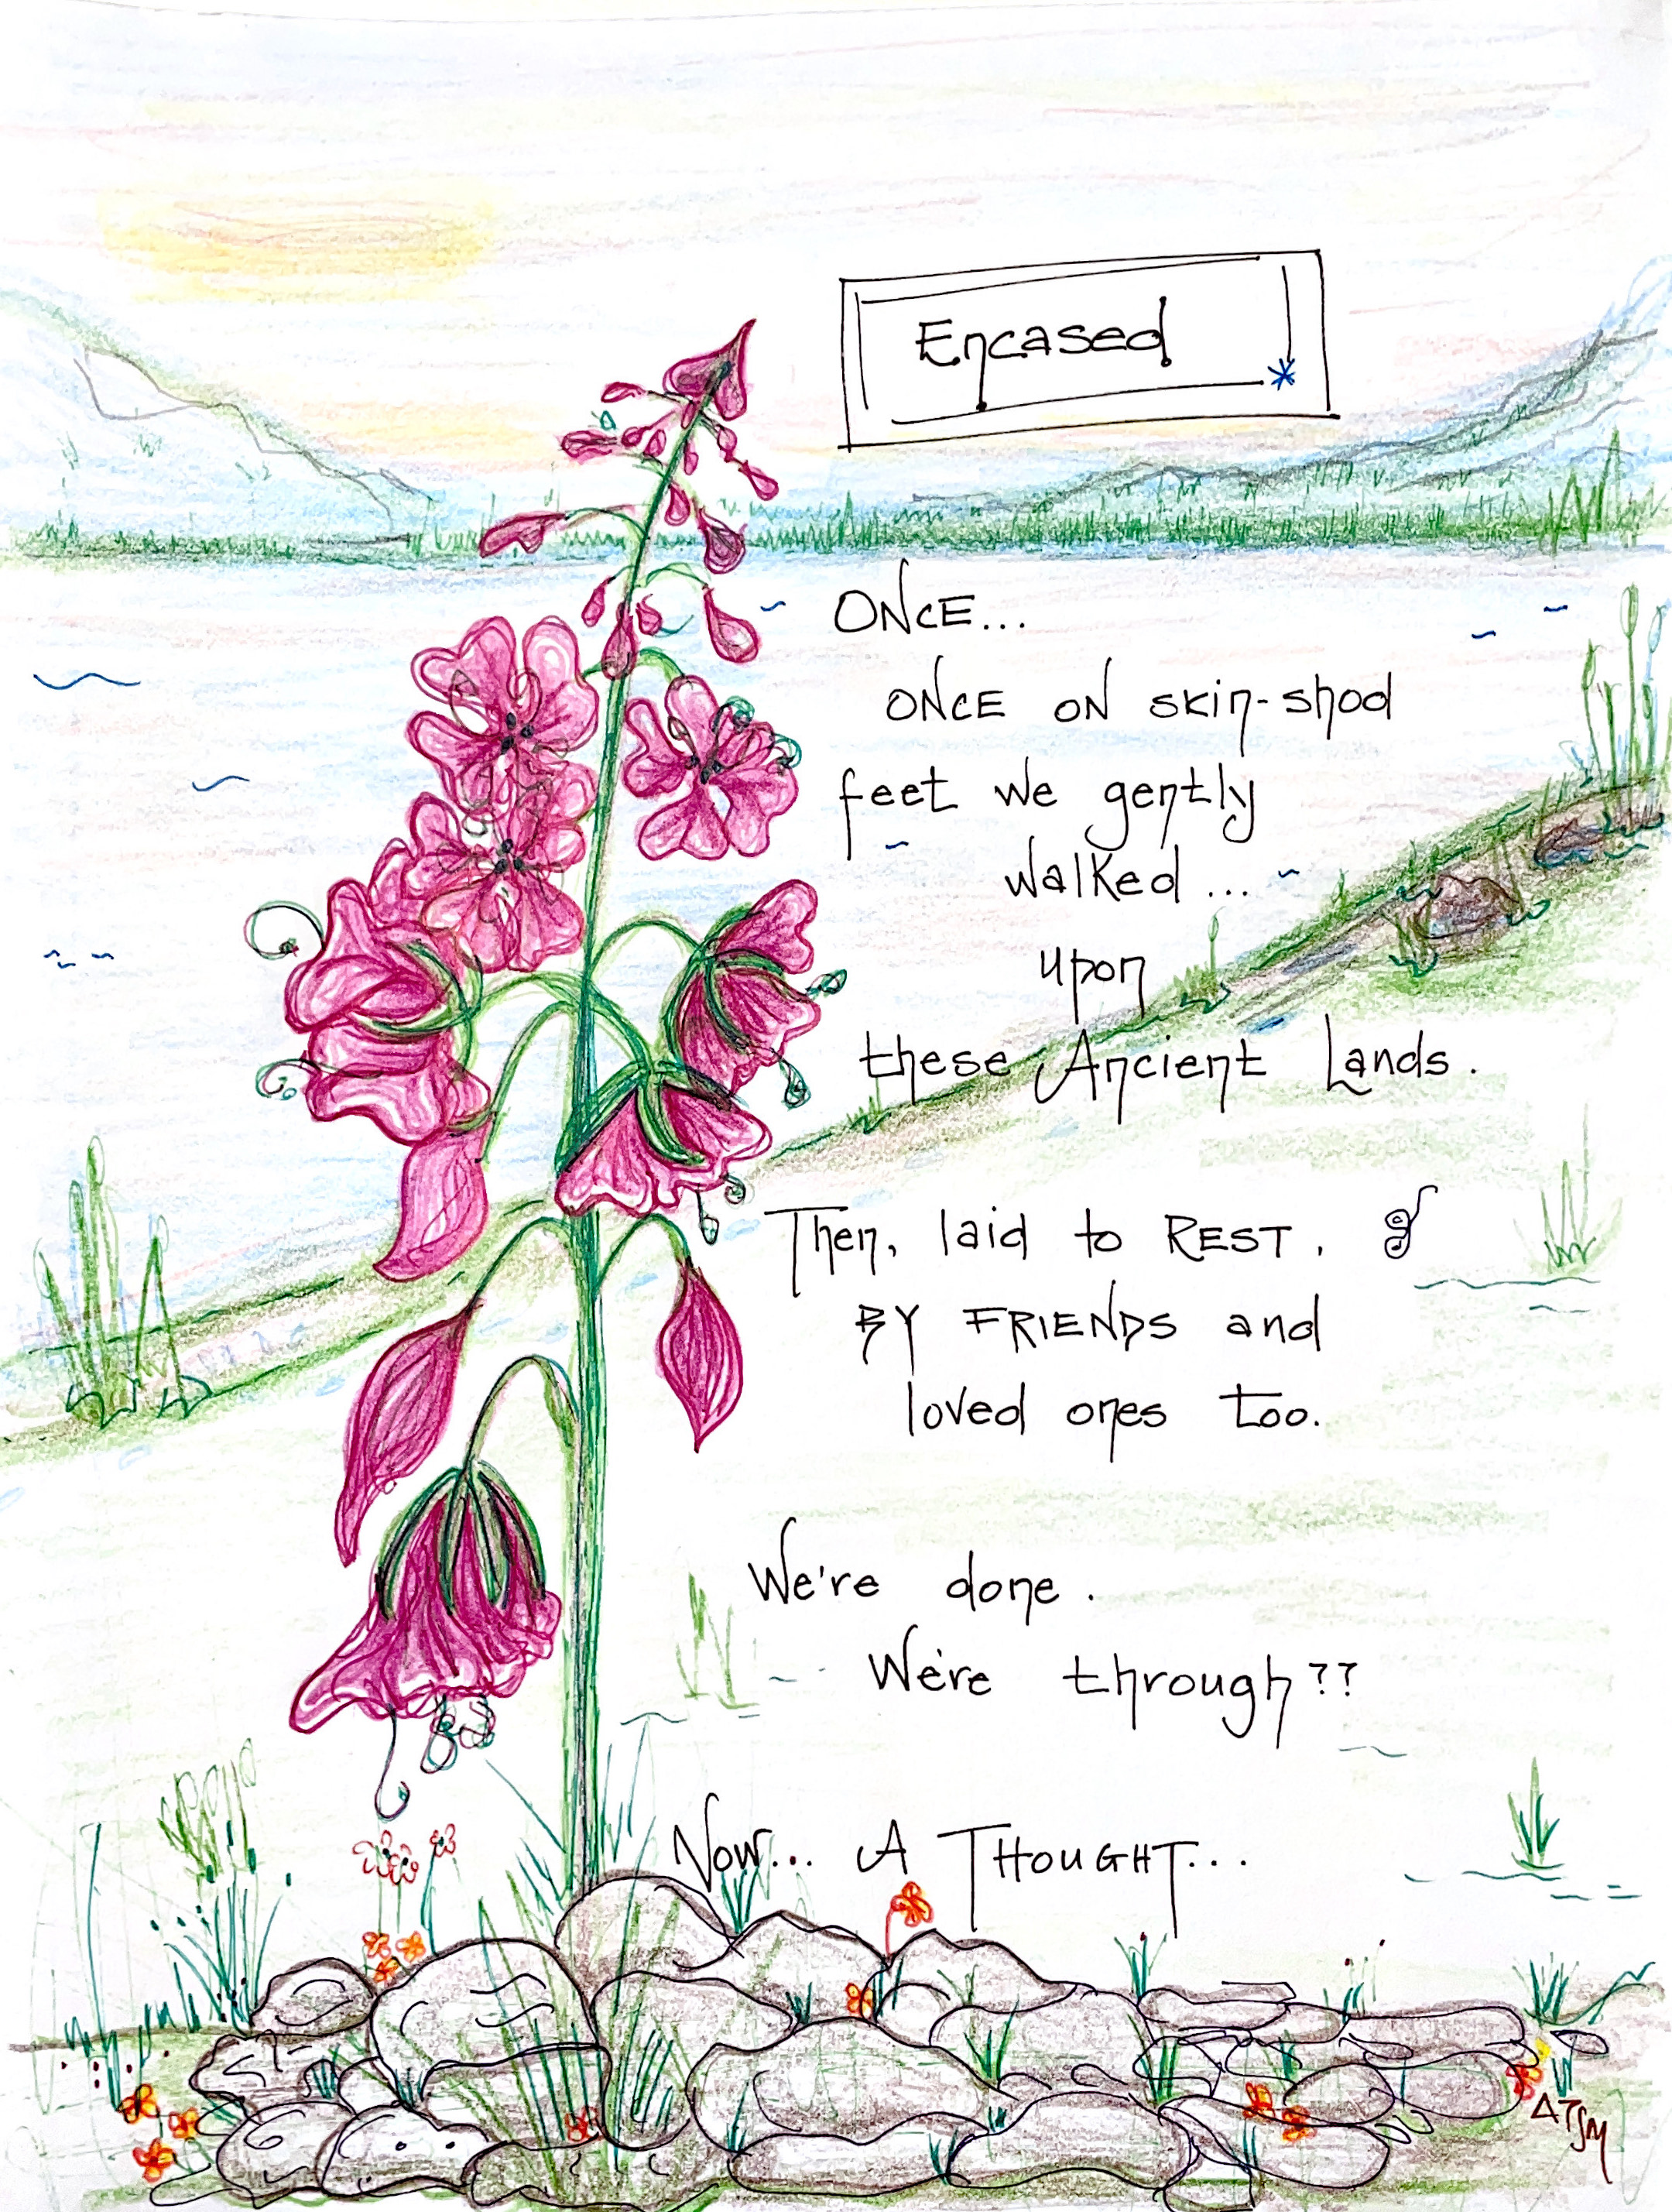 Encased
ONCE...
ONCE ON skin-shod
feet we gently
walked...
upon
these Ancient Lands.
Then, laid to REST.
BY FRIENDS and
loved ones too.
We're done.
We're through??
Now... A THOUGHT...